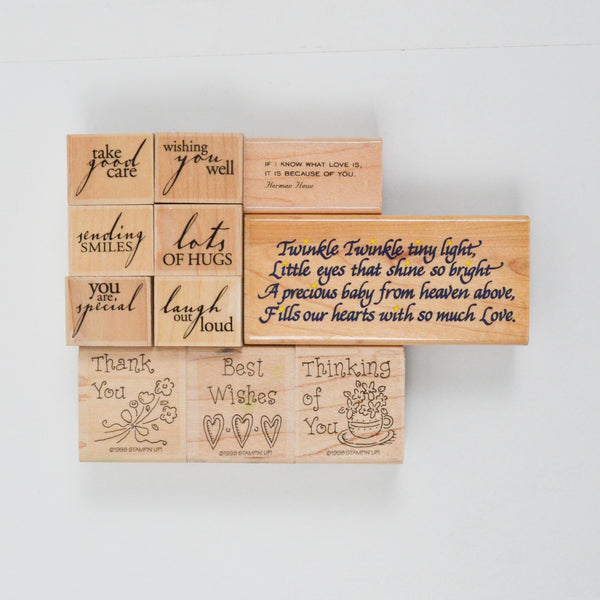 take
good
care
wishing
you
well
IF I KNOW WHAT LOVE IS,
IT IS BECAUSE OF YOU.
Herman Hesse
sending
SMILES
lots
OF HUGS
Twinkle Twinkle tiny light,
Little eyes that shine so bright
A precious baby from heaven above,
Fills our hearts with so much Love.
you
are
special
laugh
out
loud
Thank
You
©1998 STAMPIN' UP!
Best
Wishes
©1998 STAMPIN' UP!
Thinking
of
You
©1998 STAMPIN' UP!